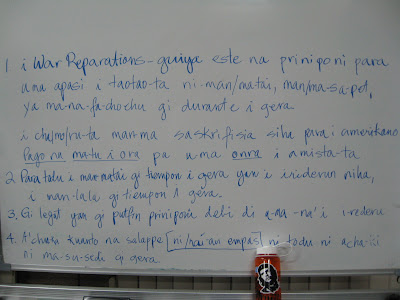 1 i War Reparations - guiya este na priniponi para
uma apasi i taotao-ta ni-man/matai, man/ma-sa-pet,
ya ma-na-fa-cho-chu gi durante i gera.
i cha/mo/ru-ta man-ma saskrifisia siha para i amerikano
Pago na ma-tu i ora pa u-ma onra i amista-ta
2. Para todu i man matai gi tiempon i gera yan i
i man-la'la gi tiempon i gera.
3. Gi legat yan gi put/on priniponi debi di u-na-na'i i
4. A'chuka kuanto na salappe [ni/ ni todus ni
ni ma-su-sedi gi gera.